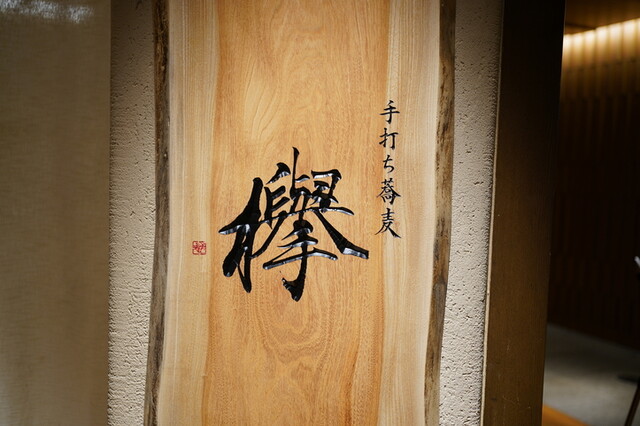 手打ち蕎麦
欅